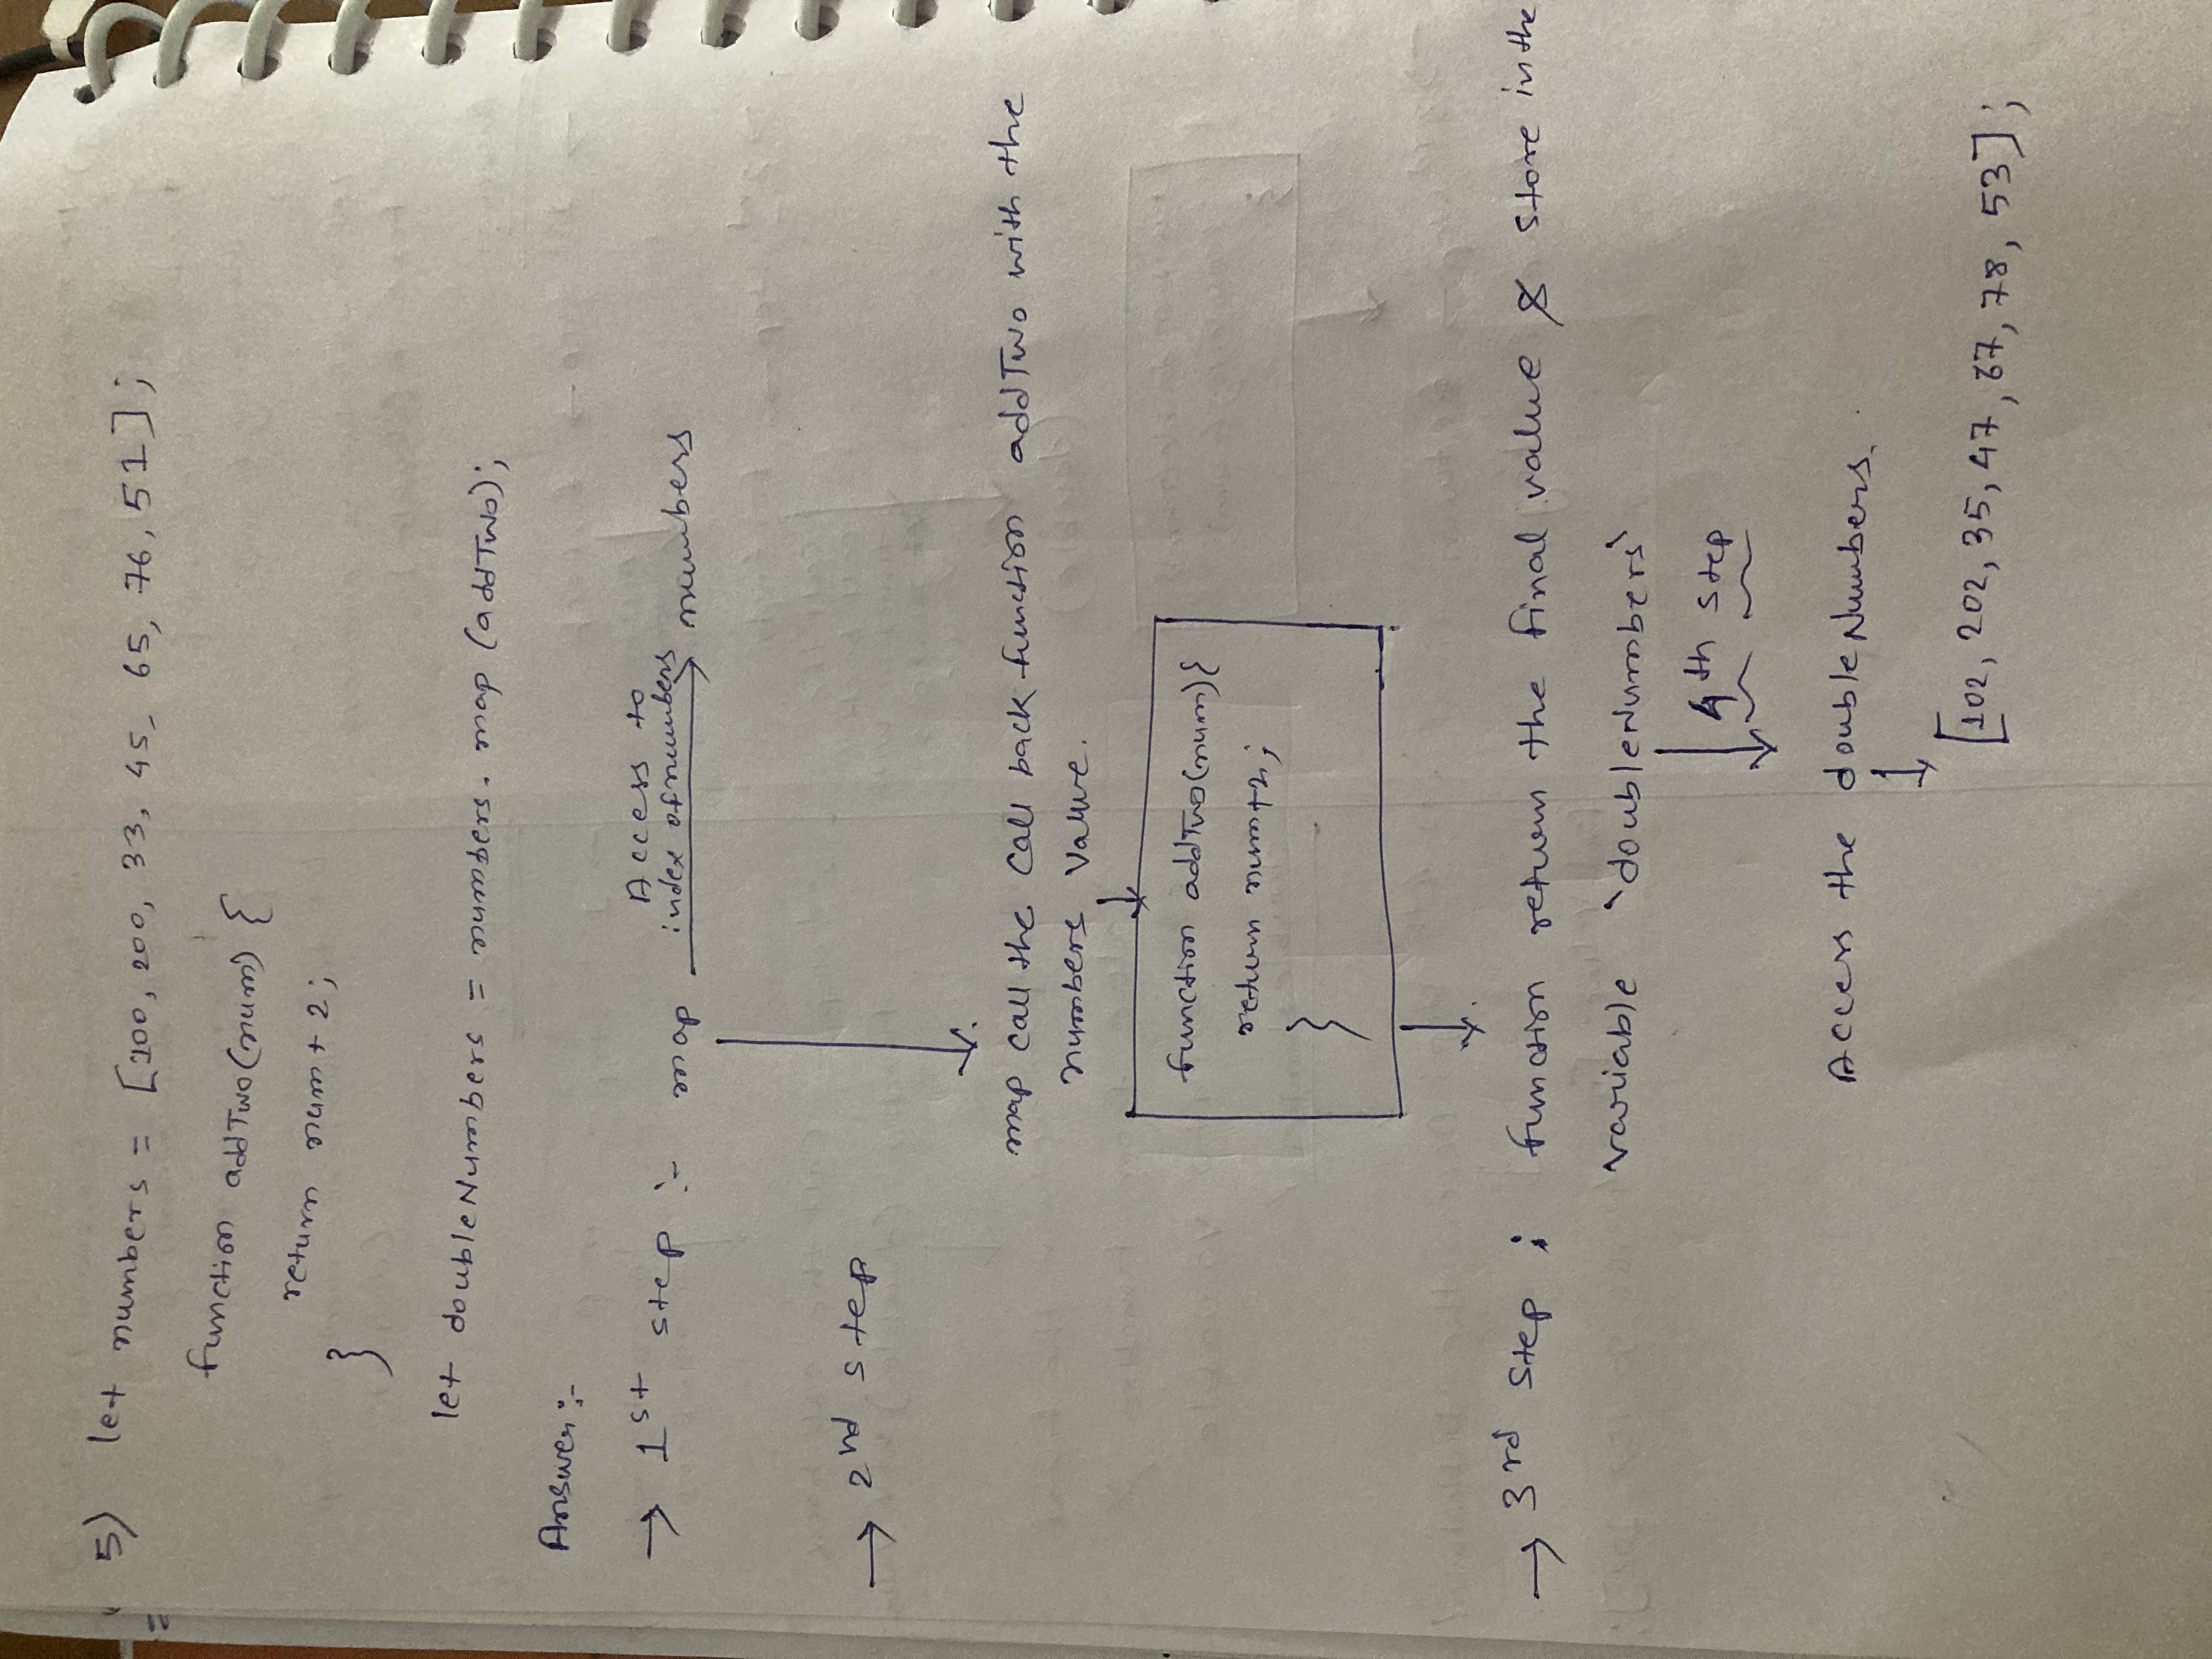 5) let numbers = [100, 200, 33, 45, 65, 76, 51];
function addTwo(num) {
return num + 2;
}
let doubleNumbers = numbers. map (addTwo);
Answer :-
→ 1st step :- map Access to index of numbers → numbers
→ 2nd step
map call the call back function addTwo with the
numbers value.
function addTwo(num){
return num+2;
}
→ 3rd step : function return the final value & store in the
variable `doubleNumbers`
4th step
Access the doubleNumbers.
[102, 202, 35, 47, 67, 78, 53];